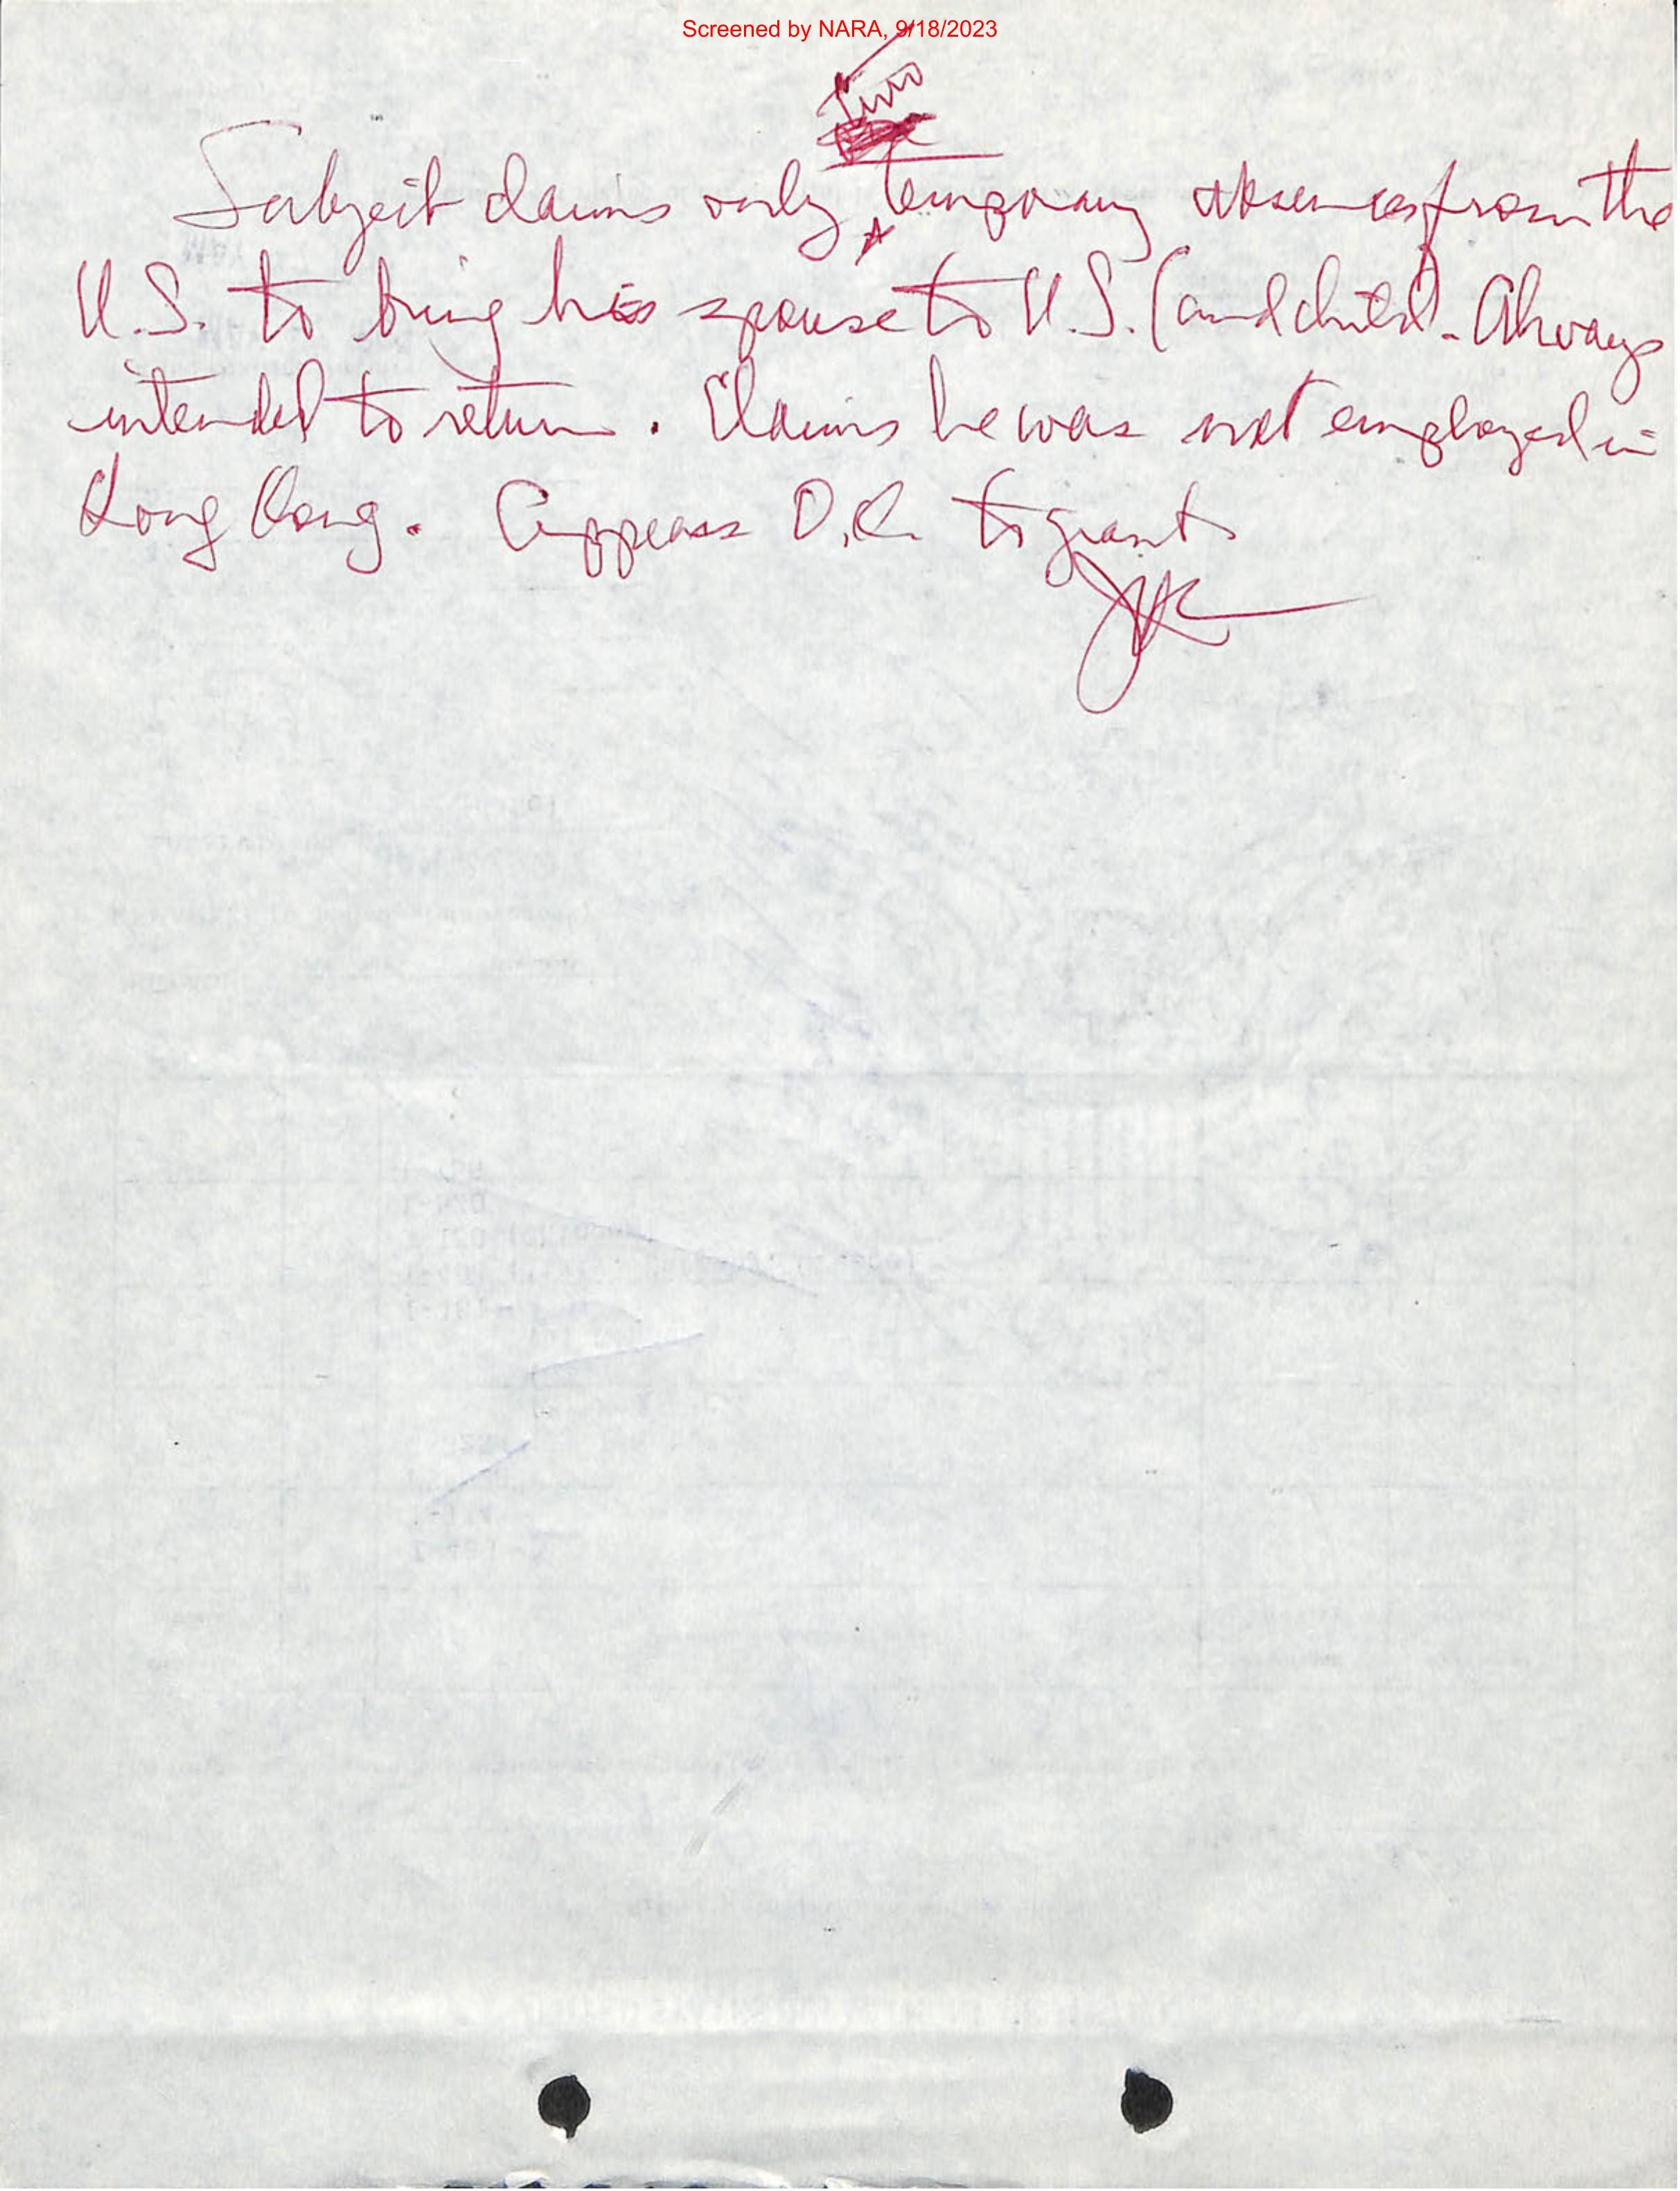 Screened by NARA, 9/18/2023
Two
Subject claims only temporary absences from the
U.S. to bring his spouse to U.S. (and child). Always
intended to return. Claims he was not employed in
Hong Kong. Appears O.K. to grant